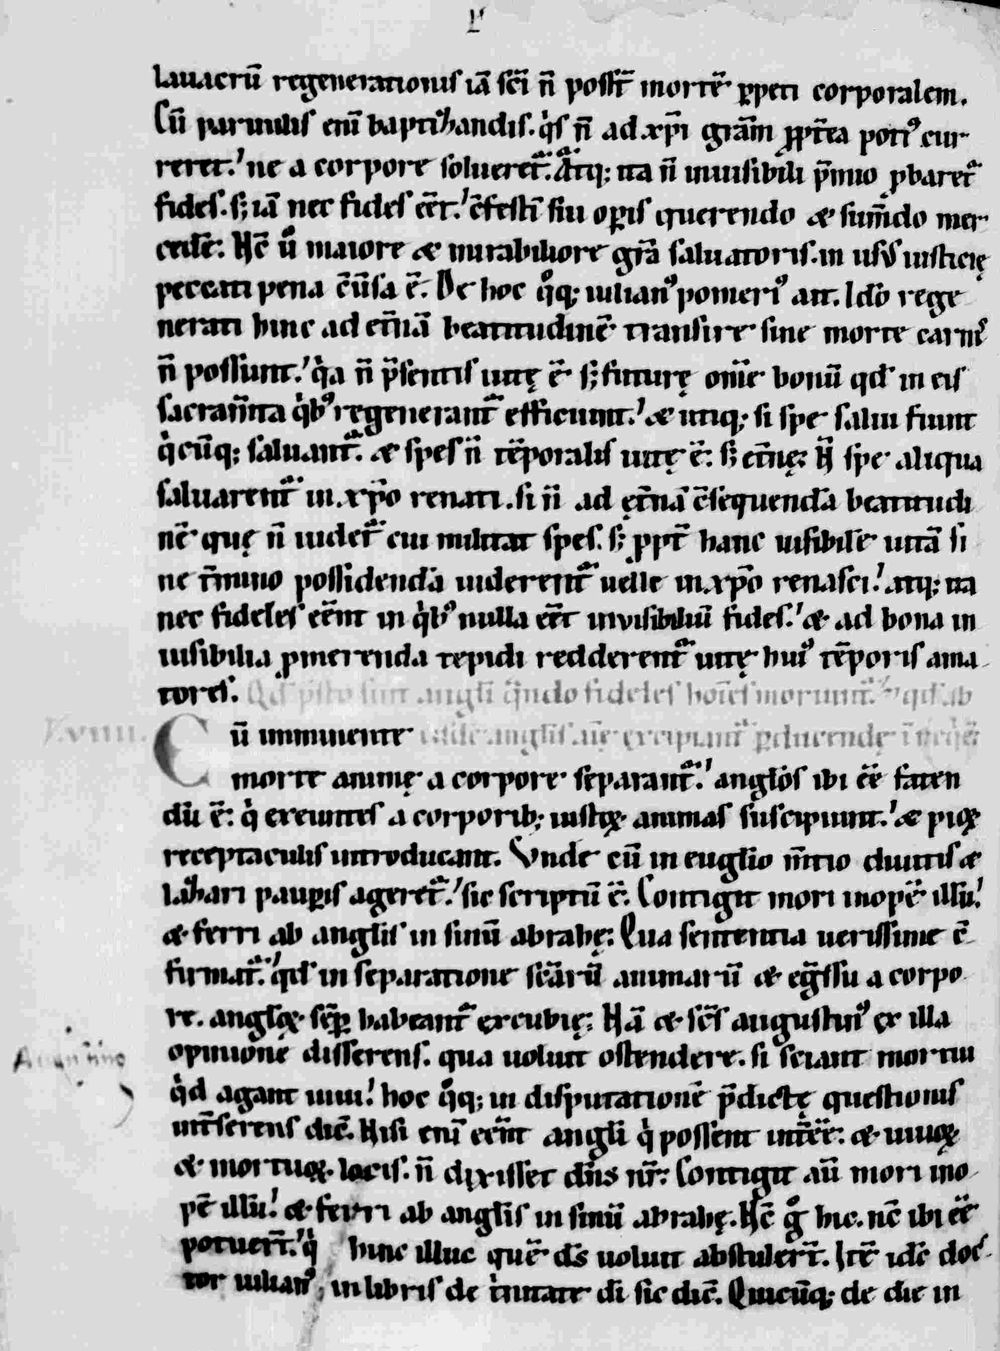 lauacrū regenerationis iā sc̄i n̄ poss̄t mortē ꝑpeti corporalem.
Cū paruulis eni baptizandis. q̇s n̄ ad xp̄i grām ꝓpt̄ea poti᷒ cur-
reret.' ne a corpore soluereť. Atq; ita n̄ inuisibili p̄mio ꝓbareť
fides. s; iā nec fides eēt.' c̄festī sui oꝑis querendo & sum̄do mer-
cedē. Hc̄ u̇ maiore & mirabiliore grā saluatoris. in usū iusticię
peccati pena c̄ūsa ē. De hoc q̊q; iulian᷒ pomeri᷒ ait. Idō rege
nerati hinc ad et̄nā beatitudinē transire sine morte carnis
n̄ possunt.' q̇a n̄ p̄sentis uitę ē s; futurę om̄e bonū qd̄ in eis
sacram̄ta q̇b᷒ regeneranť efficiunt.' & utiq; si spe salui fiunt
q̇cūq; saluanť. & spes n̄ tēporalis uitę ē. s; et̄nę. N̄ spe aliqua
saluarenť in xp̄o renati. si n̄ ad ęt̄nā c̄sequendā beatitudi
nē quę n̄ uideť cui militat spes. s; ꝓpt̄ hanc uisibilē uitā si
ne t̄mino possidendā uiderenť uelle in xp̄o renasci.' atq; ita
nec fideles eēnt in q̇b᷒ nulla eēt inuisibiliū fides.' & ad bona in
uisibilia ꝓmerenda tepidi redderenť uitę hui᷒ tēporis ama
tores. Qd̄ p̄sto sint angli q̄ndo fideles hoīes moriunť
XVIIII. Cū imminente
morte animę a corpore separanť.' anglōs ibi eē faten
dū ē. q̇ exeuntes a corporib; iustoꝝ animas suscipiunt.' & pioꝝ
receptaculis introducant. Vnde cū in euglio m̄tio diuitis &
lazari pauꝑis ageret̄.' sic scriptū ē. Contigit mori inopē illū.'
& ferri ab anglis in sinū abrahę. Qua sententia uerissime c̄
firmať.' qd̄ in separatione scārū animarū & eḡssu a corpo
re. angloꝝ semꝑ habeanť excubię. Nā & sc̄s augustin᷒ ex illa
opinione disserens. qua uoluit ostendere. si sciant mortui
q̇d agant uiui.' hoc q̊q; in disputationē p̄dictę questionis
int̄serens dic̄. Nisi eni eēnt angli q̇ possent int̄eē. & uiuoꝝ
& mortuoꝝ locis. n̄ dixisset dn̄s nr̄. Contigit aū mori ino
pē illū.' & ferri ab anglis in sinū abrahę. Nc̄ g̊ hic. nc̄ ibi eē
potuer̄t.' q̇ hinc illuc quē ds̄ uoluit abstuler̄t. Itē idē doc
tor iulian᷒, in libris de ṫnitate di sic dic̄. Quicūq; de die in